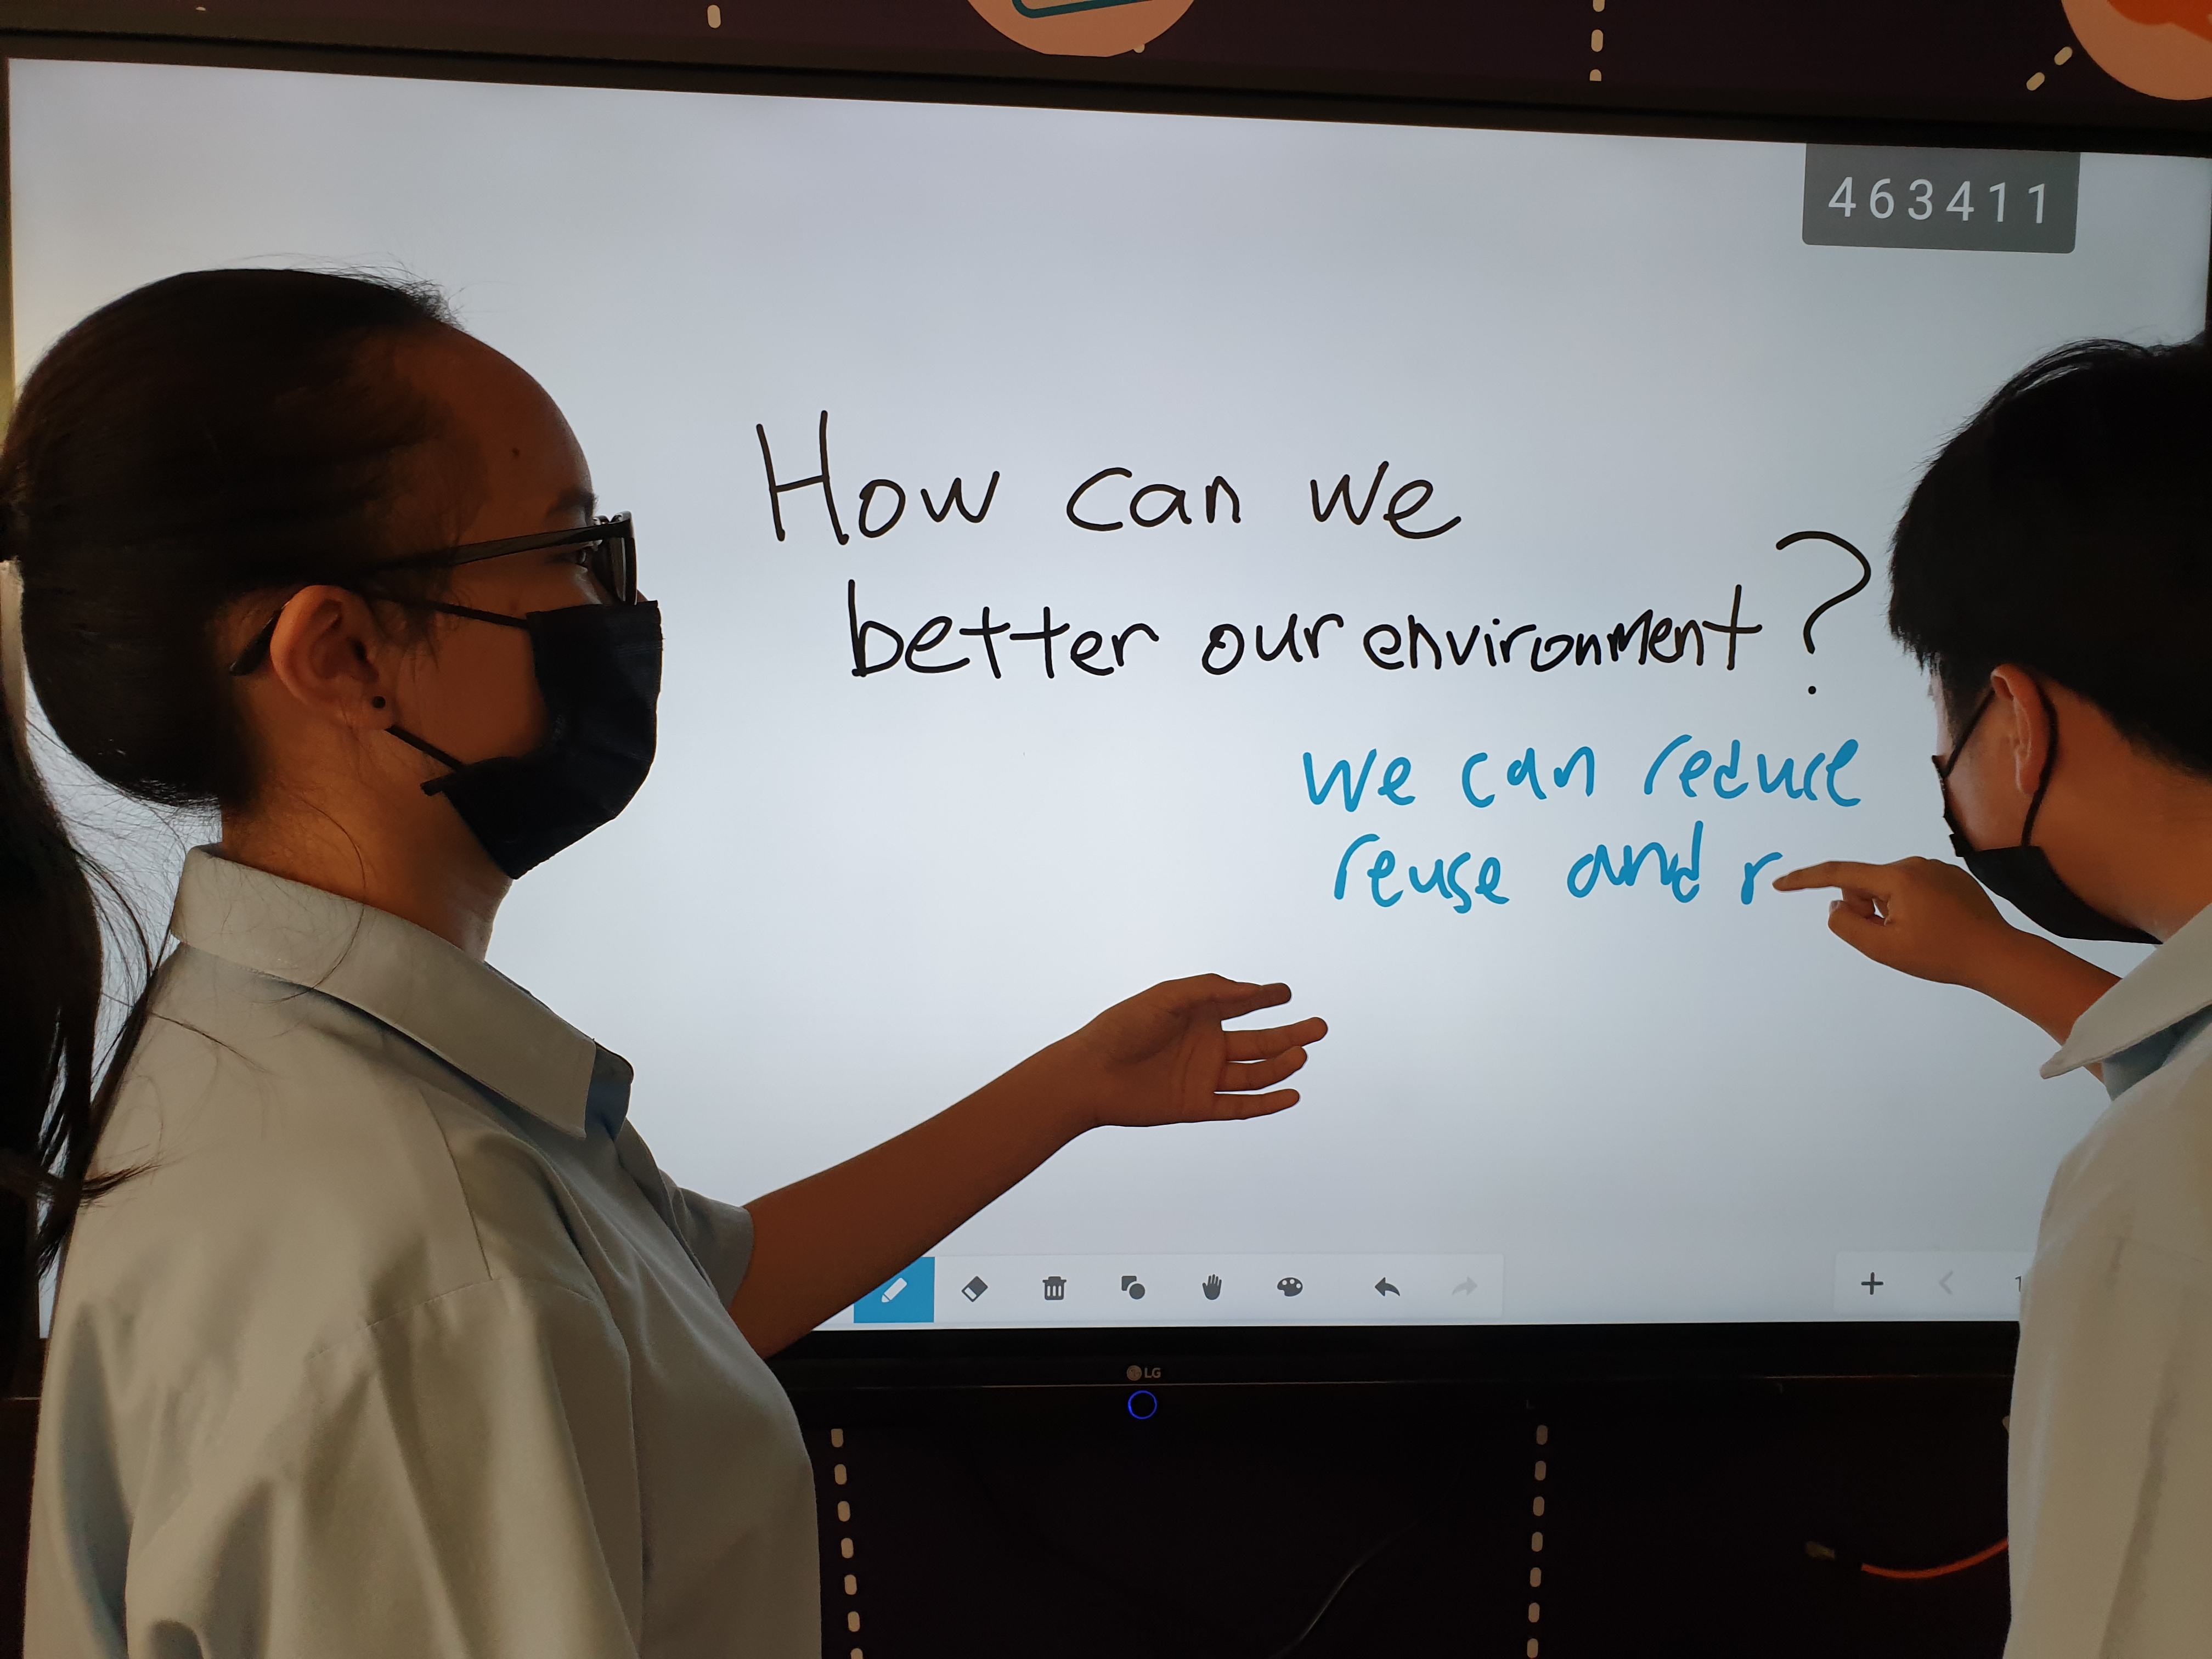 463411
How can we
better our environment?
we can reduce
reuse and r
LG